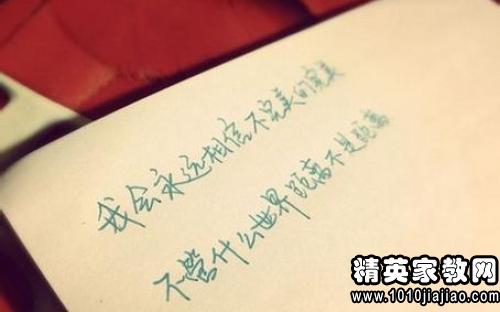 我会永远相信不完美的完美
不管什么世界距离不是距离
精英家教网
www.1010jiajiao.com